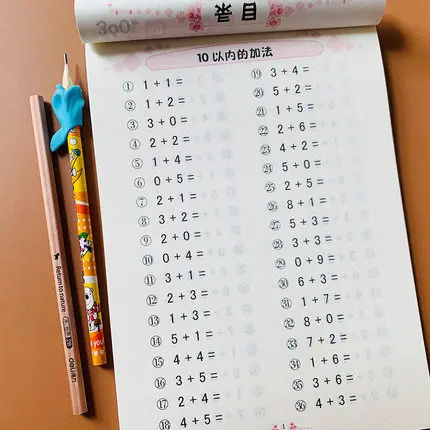 目录
10以内的加法
① 1+1=
② 1+2=
③ 3+0=
④ 2+2=
⑤ 1+4=
⑥ 0+5=
⑦ 2+1=
⑧ 3+2=
⑨ 2+0=
⑩ 0+4=
⑪ 3+1=
⑫ 2+3=
⑬ 1+3=
⑭ 5+1=
⑮ 4+4=
⑯ 3+5=
⑰ 2+4=
⑱ 4+5=
⑲ 3+4=
⑳ 5+2=
㉑ 1+5=
㉒ 2+6=
㉓ 4+2=
㉔ 5+0=
㉕ 2+5=
㉖ 8+1=
㉗ 5+3=
㉘ 3+3=
㉙ 0+9=
㉚ 6+3=
㉛ 1+7=
㉜ 8+0=
㉝ 7+2=
㉞ 1+6=
㉟ 3+6=
㊱ 4+3=
1
Return to nature
deli